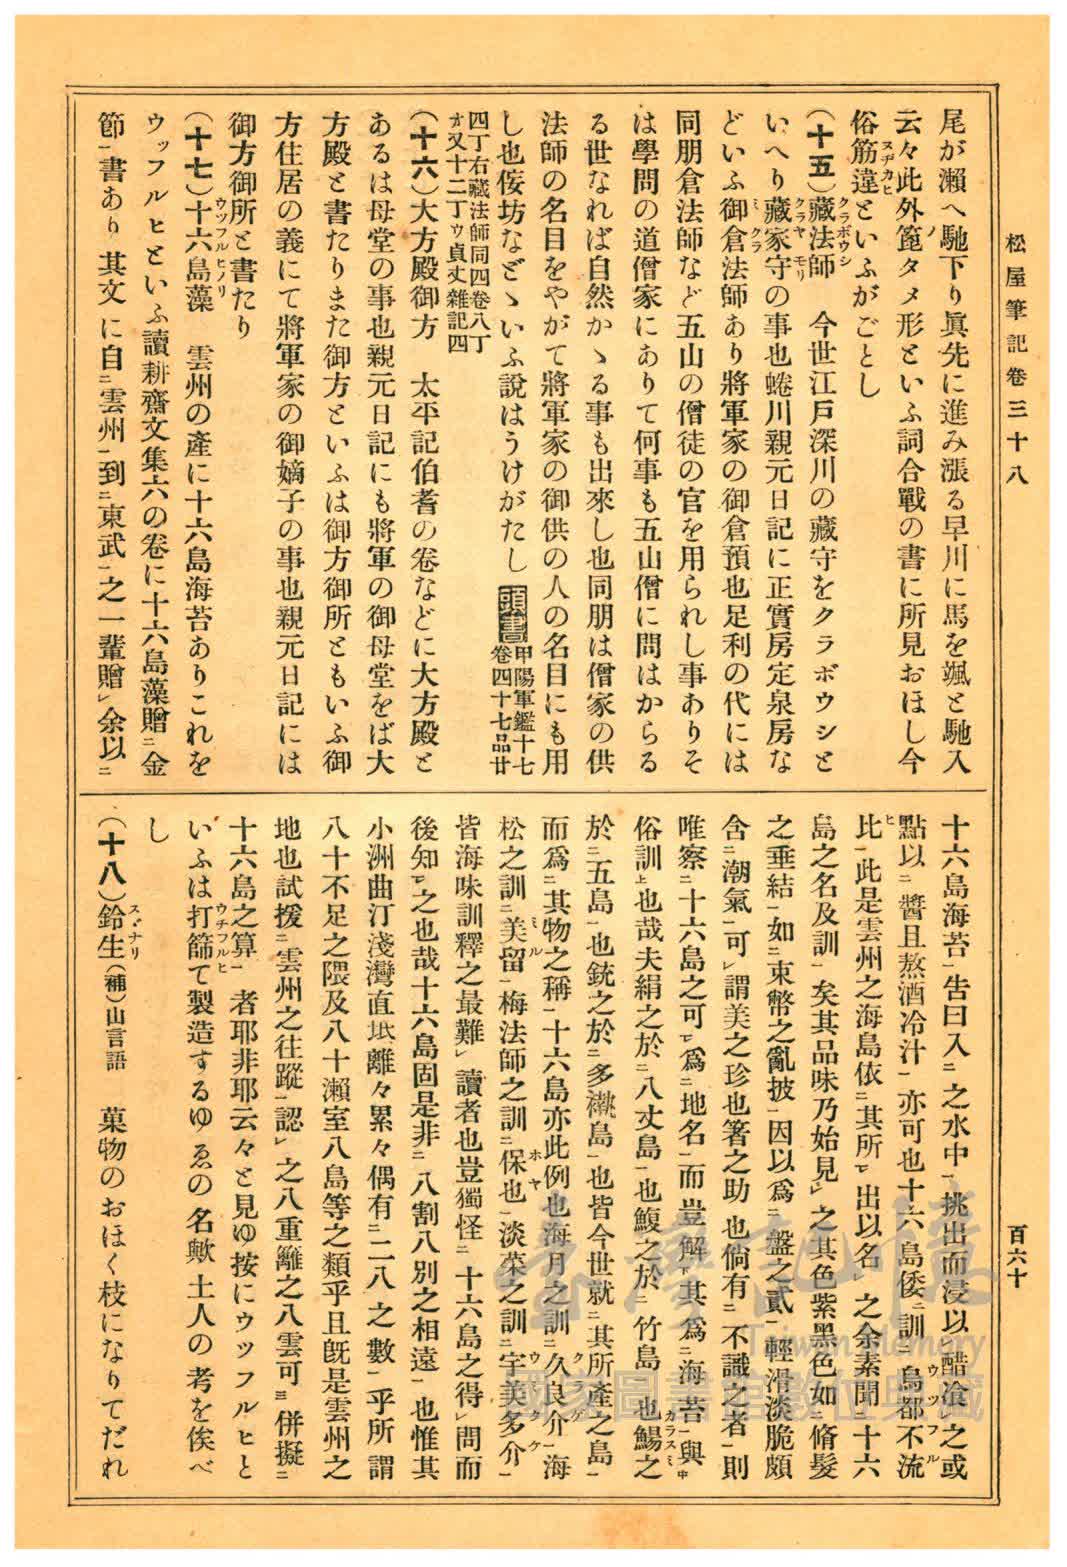 松屋筆記卷三十八
百六十
尾が瀨へ馳下り眞先に進み漲る早川に馬を颯と馳入
云々此外箆タメ形といふ詞合戰の書に所見おほし今
俗筋違といふがごとし
(十五)藏法師　今世江戸深川の藏守をクラボウシと
いへり藏家守の事也蜷川親元日記に正實房定泉房な
どいふ御倉法師あり將軍家の御倉預也足利の代には
同朋倉法師など五山の僧徒の官を用られし事ありそ
は學問の道僧家にありて何事も五山僧に問はからる
る世なれば自然かゝる事も出來し也同朋は僧家の供
法師の名目をやがて將軍家の御供の人の名目にも用
し也侫坊などゝいふ說はうけがたし 頭書 甲陽軍鑑十七
卷四十七品廿
四丁右藏法師同四卷八丁
オ又十二丁ゥ貞丈雜記四
(十六)大方殿御方　太平記伯耆の卷などに大方殿と
あるは母堂の事也親元日記にも將軍の御母堂をば大
方殿と書たりまた御方といふは御方御所ともいふ御
方住居の義にて將軍家の御嫡子の事也親元日記には
御方御所と書たり
(十七)十六島藻　雲州の產に十六島海苔ありこれを
ウッフルヒといふ讀耕齋文集六の卷に十六島藻贈二金
節一書あり其文に自二雲州一到二東武一之一輩贈レ余以二
十六島海苔一告曰入二之水中一挑出而浸以醋飡レ之或
點以二醬且熬酒冷汁一亦可也十六島倭二訓二島都不流
比一此是雲州之海島依二其所一出以名レ之余素聞二十六
島之名及訓一矣其品味乃始見レ之其色紫黑色如二脩髮
之垂結一如二束幣之亂披一因以爲二盤之貳一輕滑淡脆頗
含二潮氣一可レ謂美之珍也箸之助也倘有二不識之者一則
唯察二十六島之可一爲二地名一而豈解下其爲二海苔一與中
俗訓上也哉夫絹之於二八丈島一也鰒之於二竹島一也鰑之
於二五島一也銃之於二多襯島一也皆今世就二其所產之島一
而爲二其物之稱一十六島亦此例也海月之訓二久良介一海
松之訓二美留一梅法師之訓二保也一淡菜之訓二宇美多介一
皆海味訓釋之最難レ讀者也豈獨怪二十六島之得レ問而
後知一之也哉十六島固是非二八割八別之相遠一也惟其
小洲曲汀淺灣直坻離々累々偶有二二八之數一乎所謂
八十不足之隈及八十瀨室八島等之類乎且既是雲州之
地也試援二雲州之往蹤一認レ之八重籬之八雲可三併擬二
十六島之算一者耶非耶云々と見ゆ按にウッフルヒと
いふは打篩て製造するゆゑの名歟土人の考を俟べ
し
(十八)鈴生(補)山言語　菓物のおほく枝になりてだれ